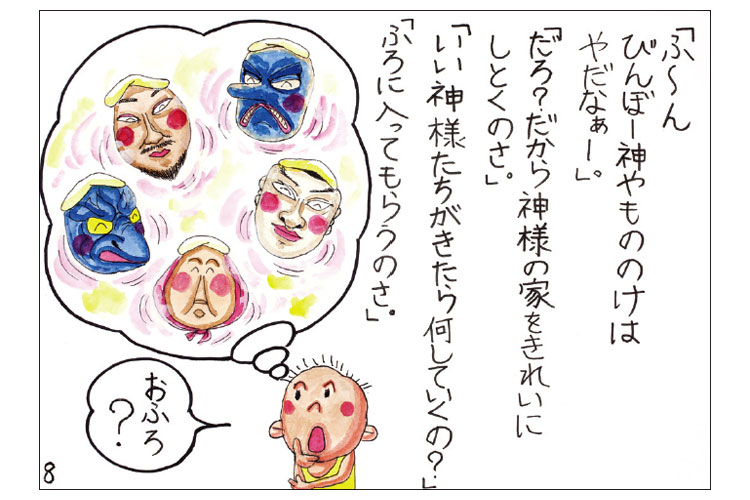 「ふ〜ん
びんぼー神やもののけは
やだなぁー。」
「だろ?だから神様の家をきれいに
しとくのさ。」
「いい神様たちがきたら何していくの?」
「ふろに入ってもらうのさ。」
おふろ
?
8